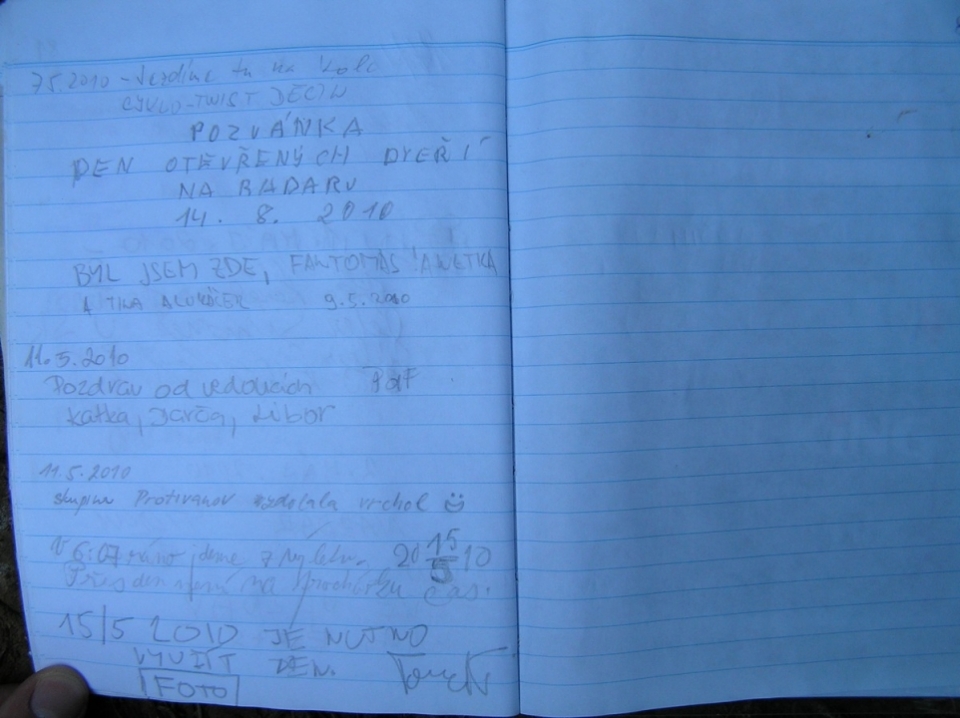 7.5.2010 - Jezdíme tu na kole
CYKLO-TWIST DĚČÍN
POZVÁNKA
DEN OTEVŘENÝCH DVEŘÍ
NA RADARU
14. 8. 2010
BYL JSEM ZDE, FANTOMAS
9.5.2010
11.5.2010
Pozdrav od vedoucích PdF
Katka, Jarča, Libor
11.5.2010
skupina Protivanov zdolala vrchol
V 6:07 ráno jdeme z 20 15/5 10
Přes den není na procházku čas.
15/5 2010 JE NUTNO
VYUŽÍT DEN.
FOTO